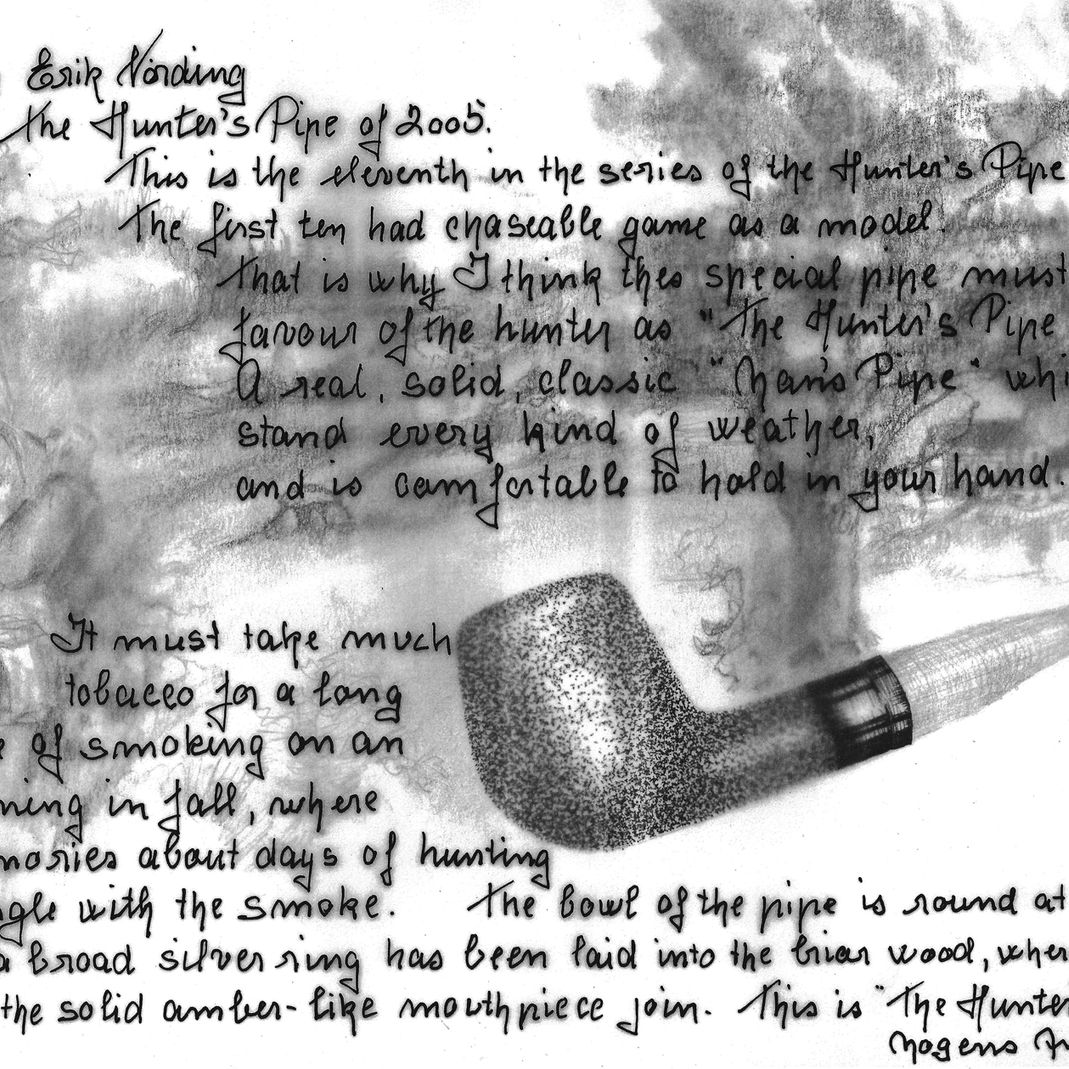 Erik Nørding
The Hunter's Pipe of 2005.
This is the eleventh in the series of the Hunter's Pipe
The first ten had chaseable game as a model.
That is why I think this special pipe must
favour of the hunter as "The Hunter's Pipe
A real, solid, classic "Man's Pipe" whi
stand every kind of weather,
and is comfortable to hold in your hand.
It must take much
tobacco for a long
of smoking on an
ning in fall, where
mories about days of hunting
ngle with the smoke. The bowl of the pipe is round at
a broad silver ring has been laid into the briar wood, wher
the solid amber-like mouthpiece join. This is "The Hunter
Mogens